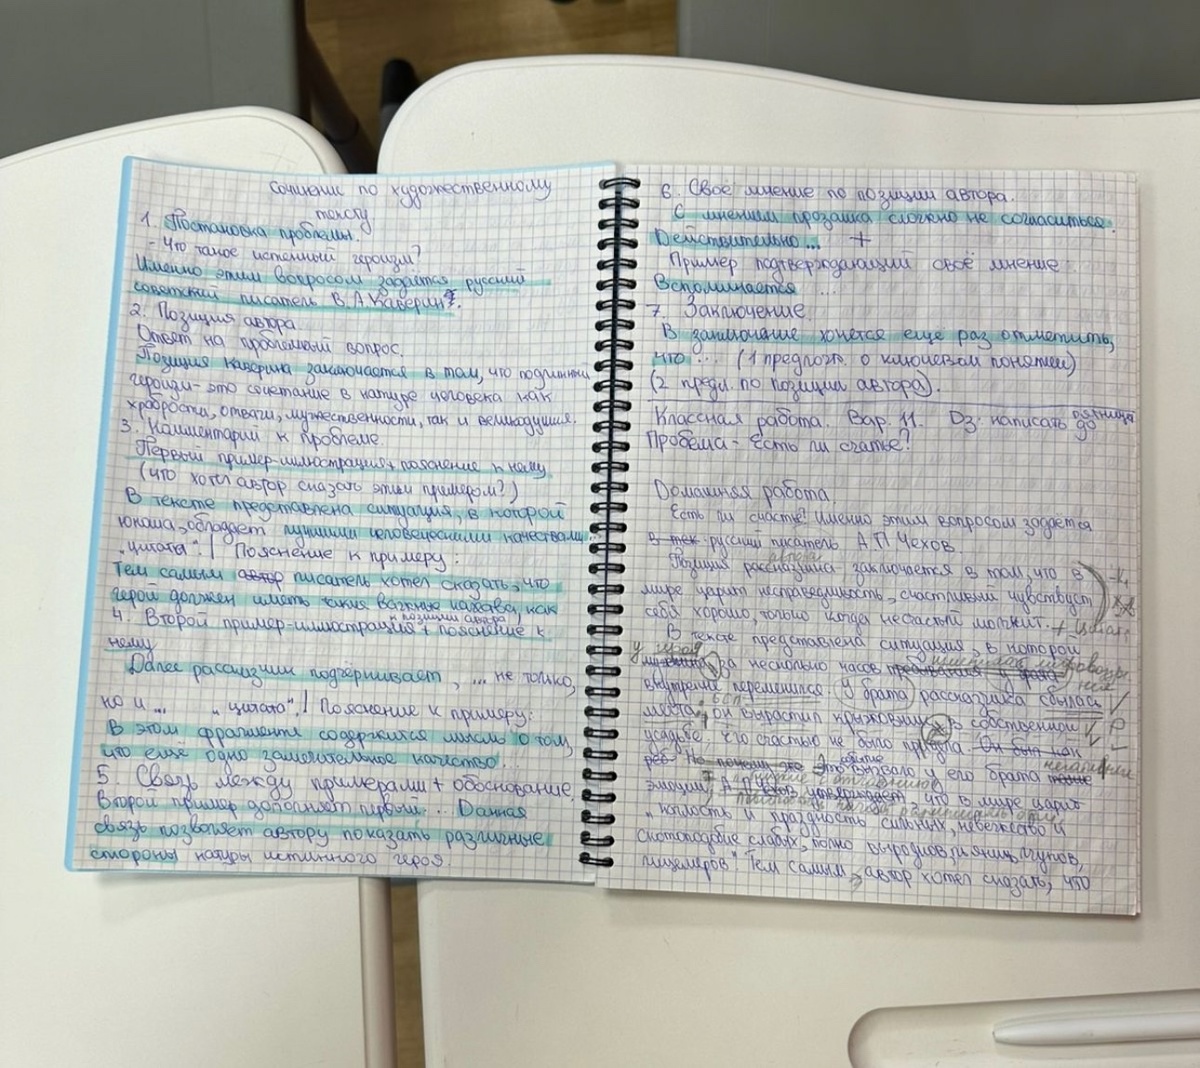 Сочинение по художественному
тексту
1. Постановка проблемы.
- Что такое истенный героизм?
Именно этим вопросом задаётся русский
советский писатель В.А Каверин.
2. Позиция автора
Ответ на проблемный вопрос.
Позиция Каверина заключается в том, что подлинный
героизм - это сочетание в натуре человека как
храбрости, отваги, мужественности, так и великодушия.
3. Комментарий к проблеме.
Первый пример-иллюстрация + пояснение к нему
(что хотел автор сказать этим примером?)
В тексте представлена ситуация, в которой
юноша обладает лучшими человеческими качествами...
"цитата". / Пояснение к примеру:
Тем самым автор писатель хотел сказать, что
герой должен иметь такие важные качества, как
к позиции автора
4. Второй пример-иллюстрация + пояснение к
нему
Далее рассказчик подчёркивает, ... не только,
но и ... "цитата"./ Пояснение к примеру:
В этом фрагменте содержится мысль о том,
что ещё одно замечательное качество...
5 Связь между примерами + обоснование.
Второй пример дополняет первый... Данная
связь позволяет автору показать различные
стороны натуры истинного героя.
6. Своё мнение по позиции автора.
С мнением прозаика сложно не согласиться.
Действительно... +
Пример подтверждающий своё мнение:
Вспоминается ...
7. Заключение
В заключение хочется еще раз отметить,
что ... (1 предлож. о ключевом понятии)
(2 предл. по позиции автора).
Классная работа. Вар. 11. Дз: написать до пятницы
Проблема - Есть ли счатье?
Домашняя работа
Есть ли счастье? Именно этим вопросом задаётся
в тек русский писатель А.П Чехов.
автора
Позиция рассказчика заключается в том, что в
мире царит несправедливость, счастливый чувствует
себя хорошо, только когда несчастый молчит. + цитат.
В тексте представлена ситуация, в которой
у героя за несколько часов
внутренне перемешился. У брата рассказчика сбылась
мечта, он вырастил крыжовник в собственной
усадьбе, его счастью не было предела. Он был как
реб На почему это Это вызвало у его брата
эмоции, А.П утверждает, что в мире царит
"наглость и праздность сильных, невежество и
скотоподобие слабых, полно выродков, пьяниц, лгунов,
лицемеров". Тем самым, автор хотел сказать, что